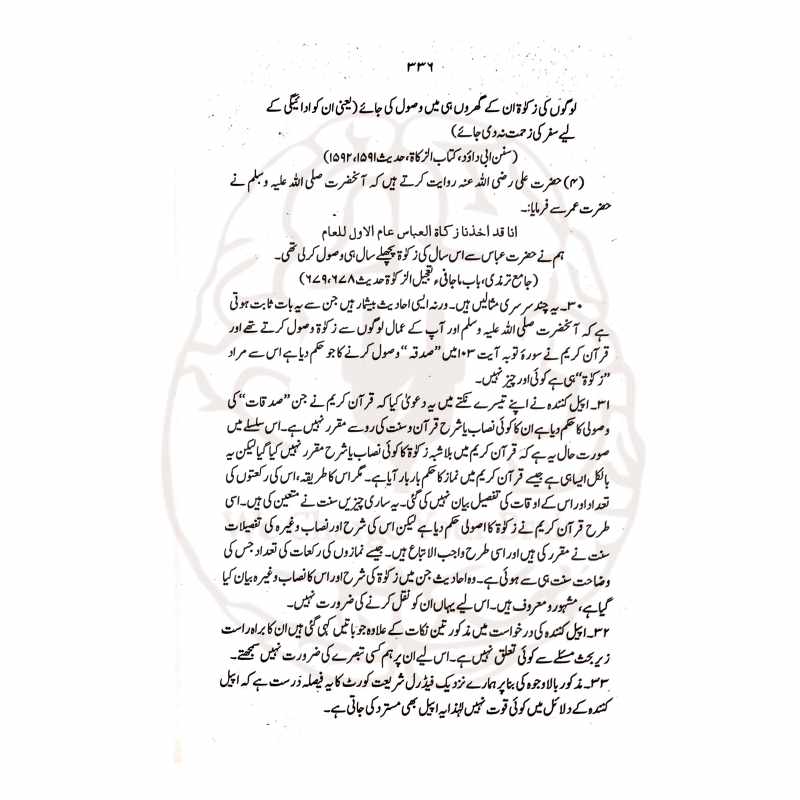 ۳۳۶
لوگوں کی زکوٰۃ ان کے گھروں ہی میں وصول کی جائے (یعنی ان کو ادائیگی کے
لیے سفر کی زحمت نہ دی جائے)
(سنن ابی داؤد، کتاب الزکاۃ، حدیث ۱۵۹۱، ۱۵۹۲)
(۴) حضرت علی رضی اللہ عنہ روایت کرتے ہیں کہ آنحضرت صلی اللہ علیہ وسلم نے
حضرت عمر سے فرمایا:۔
انا قد اخذنا زکاة العباس عام الاول للعام
ہم نے حضرت عباس سے اس سال کی زکوٰۃ پچھلے سال ہی وصول کر لی تھی۔
(جامع ترمذی، باب ماجائی ء تعجیل الزکوٰۃ حدیث ۶۷۸، ۶۷۹)
۳۰۔ یہ چند سرسری مثالیں ہیں۔ ورنہ ایسی احادیث بیشمار ہیں جن سے یہ بات ثابت ہوتی
ہے کہ آنحضرت صلی اللہ علیہ وسلم اور آپ کے عمال لوگوں سے زکوٰۃ وصول کرتے تھے اور
قرآن کریم نے سورۂ توبہ آیت ۱۰۳ میں ”صدقہ“ وصول کرنے کا جو حکم دیا ہے اس سے مراد
”زکوٰۃ“ ہی ہے کوئی اور چیز نہیں۔
۳۱۔ اپیل کنندہ نے اپنے تیسرے نکتے میں یہ دعویٰ کیا کہ قرآن کریم نے جن ”صدقات“ کی
وصولی کا حکم دیا ہے ان کا کوئی نصاب یا شرح قرآن و سنت کی رو سے مقرر نہیں ہے۔ اس سلسلے میں
صورت حال یہ ہے کہ قرآن کریم میں بلاشبہ زکوٰۃ کا کوئی نصاب یا شرح مقرر نہیں کیا گیا لیکن یہ
بالکل ایسا ہی ہے جیسے قرآن کریم میں نماز کا حکم بار بار آیا ہے۔ مگر اس کا طریقہ، اس کی رکعتوں کی
تعداد اور اس کے اوقات کی تفصیل بیان نہیں کی گئی۔ یہ ساری چیزیں سنت نے متعین کی ہیں۔ اسی
طرح قرآن کریم نے زکوٰۃ کا اصولی حکم دیا ہے لیکن اس کی شرح اور نصاب وغیرہ کی تفصیلات
سنت نے مقرر کی ہیں اور اسی طرح واجب الاتباع ہیں۔ جیسے نمازوں کی رکعات کی تعداد جس کی
وضاحت سنت ہی سے ہوئی ہے۔ وہ احادیث جن میں زکوٰۃ کی شرح اور اس کا نصاب وغیرہ بیان کیا
گیا ہے، مشہور و معروف ہیں۔ اس لیے یہاں ان کو نقل کرنے کی ضرورت نہیں۔
۳۲۔ اپیل کنندہ کی درخواست میں مذکور تین نکات کے علاوہ جو باتیں کہی گئی ہیں ان کا براہ راست
زیر بحث مسئلے سے کوئی تعلق نہیں ہے۔ اس لیے ان پر ہم کسی تبصرے کی ضرورت نہیں سمجھتے۔
۳۳۔ مذکور بالا وجوہ کی بنا پر ہمارے نزدیک فیڈرل شریعت کورٹ کا یہ فیصلہ درست ہے کہ اپیل
کنندہ کے دلائل میں کوئی قوت نہیں لہٰذا یہ اپیل بھی مسترد کی جاتی ہے۔